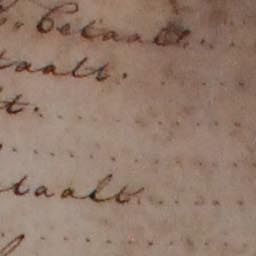 Betaalt....
taalt.
t.
taalt....